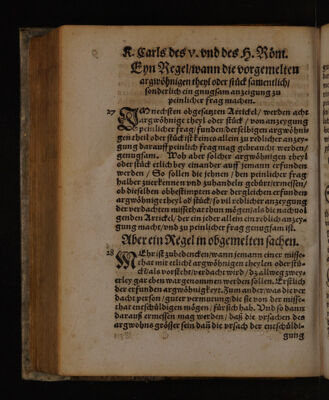 K. Carls des v. vnd des H. Röm.
Eyn Regel/wann die vorgemelten
argwönigen theyl oder stück samentlich/
sonderlich ein gnugsam anzeigung zu
peinlicher frag machen.
27 IM nechsten obgesatzten Artickel/ werden acht
argwönige theyl oder stück/ von anzeygung
peinlicher frag/ funden/ der selbigen argwönigen
theil oder stück ist keines allein zu redlicher anzeygung
darauff peinlich frag mag gebraucht werden/
genugsam. Wo aber solcher argwönigen theyl
oder stück etlich bey einander auff jemann erfunden
werden/ So sollen die jehnen/ den peinlicher frag
halber zuerkennen vnd zuhandeln gebürt/ermessen/
ob dieselben obbestimpten oder dergleichen erfunden
argwönige theyl oder stück/so vil redlicher anzeygung
der verdachten missethat thun mögen/als die nachuolgenden
Artickel/ der ein jeder allein ein redlich anzeygung
macht/vnd zu peinlicher frag genugsam ist.
Aber ein Regel in obgemelten sachen.
28 MEhr ist zubedencken/wann jemann einer missethat
mit etlichen argwönigen theylen oder stücken/
als vorsteht/verdacht wird/dz allweg zweyerley
gar eben wargenommen werden sollen. Erstlich
der erfunden argwönigkeyt. Zum ander/was die verdacht
person/guter vermutung/die sie von der missethat
entschüldigen mögen/für sich hab. Vnd so dann
darauß ermessen mag werden/ daß die vrsachen des
argwohns grösser sein daß die vrsach der entschüldigung